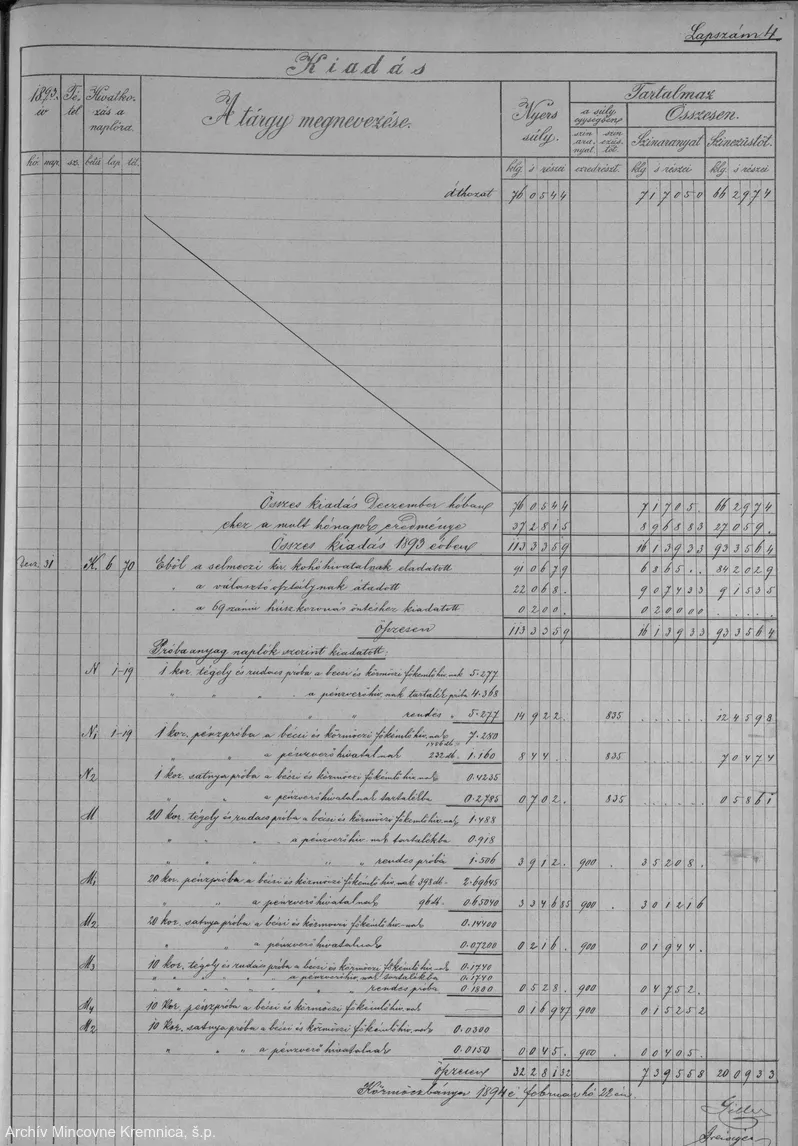 Lapszám 4.
Kiadás
1893. év
Té-tel
Hivatko-zás a naplóra.
A tárgy megnevezése.
Nyers súly.
Tartalmaz
a súly egységben
Összesen.
szín ara-nyat.
szín ezüs-töt.
Színaranyat
Színezüstöt.
hó. nap. sz. betü lap. tét.
klg s részei
ezredrészt.
klg s részei
klg s részei
áthozat 76 0544 71705 0 66 2974
Összes kiadás Deczember hóban 76 0544 71705. 66 2974
ehez a mult hónapok eredménye 37 2815 896883 27 059.
Összes kiadás 1893 évben 113 3359 16 13933 93 3564
Decz. 31 K 6 70 Ebből a selmeczi kir. kohóhivatalnak eladatott 91 0679 6865. 84 2029
" a választó osztálynak átadott 22 068. 907433 9 1535
" a 69 számú húszkoronás öntéshez kiadatott 0 200. 0 20000
Összesen 113 3359 16 13933 93 3564
Próbaanyag naplók szerint kiadatott.
N 1-19 1 kor. tégely és rudacs próba a bécsi és körmöczi főkémlőhiv.nak 5.277
" " " " a pénzverőhiv.nak tartalék próba 4.368
" " rendes " 5.277 14 922. 835 12 4598
N1 1-19 1 kor. pénzpróba a bécsi és körmöczi főkémlőhiv.nak 7.280
" " a pénzverőhivatalnak 232 db. 1.160 844. 835 70474
N2 1 kor. satnya próba a bécsi és körmöczi főkémlőhiv.nak 0.4235
" a pénzverőhivatalnak tartalékba 0.2785 0 702. 835 0 5861
M 20 kor. tégely és rudacs próba a bécsi és körmöczi főkémlőhiv.nak 1.488
" " " a pénzverőhiv.nak tartalékba 0.918
" " " " " rendes próba 1.506 3 912. 900 3 5208.
M1 20 kor. pénzpróba a bécsi és körmöczi főkémlőhiv.nak 398 db. 2.69645
" " a pénzverőhivatalnak 96 db. 0.65040 3 34685 900 3 01216
M2 20 kor. satnya próba a bécsi és körmöczi főkémlőhiv.nak 0.14400
" " " a pénzverőhivatalnak 0.07200 0 216. 900 0 1944.
M3 10 kor. tégely és rudacs próba a bécsi és körmöczi főkémlőhiv.nak 0.1740
" " " " a pénzverőhiv.nak tartalékba 0.1740
" " " " " rendes próba 0.1800 0 528. 900 0 4752.
M4 10 kor. pénzpróba a bécsi és körmöczi főkémlőhiv.nak 0 16947 900 0 15252
M2 10 kor. satnya próba a bécsi és körmöczi főkémlőhiv.nak 0.0300
" " " a pénzverőhivatalnak 0.0150 0 045. 900 0 0405.
Összesen 32 28132 7 39558 20 0933
Körmöczbánya 1894 é február hó 22 én.
Archív Mincovne Kremnica, š.p.